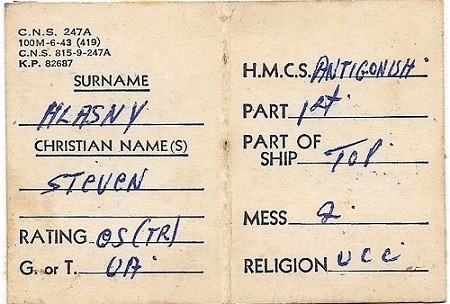 C.N.S. 247A
100M-6-43 (419)
C.N.S. 815-9-247A
K.P. 82687
SURNAME
HLASNY
CHRISTIAN NAME(S)
STEVEN
RATING OS(TR)
G. or T. UA
H.M.C.S. ANTIGONISH
PART 1st
PART OF
SHIP TOP
MESS 2
RELIGION UCC